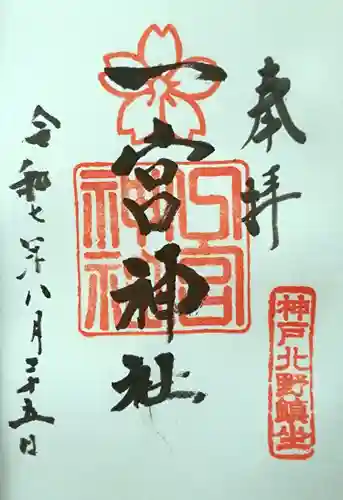 奉拝
神戸北野鎮坐
一宮神社
一宮神社
令和七年八月二十五日